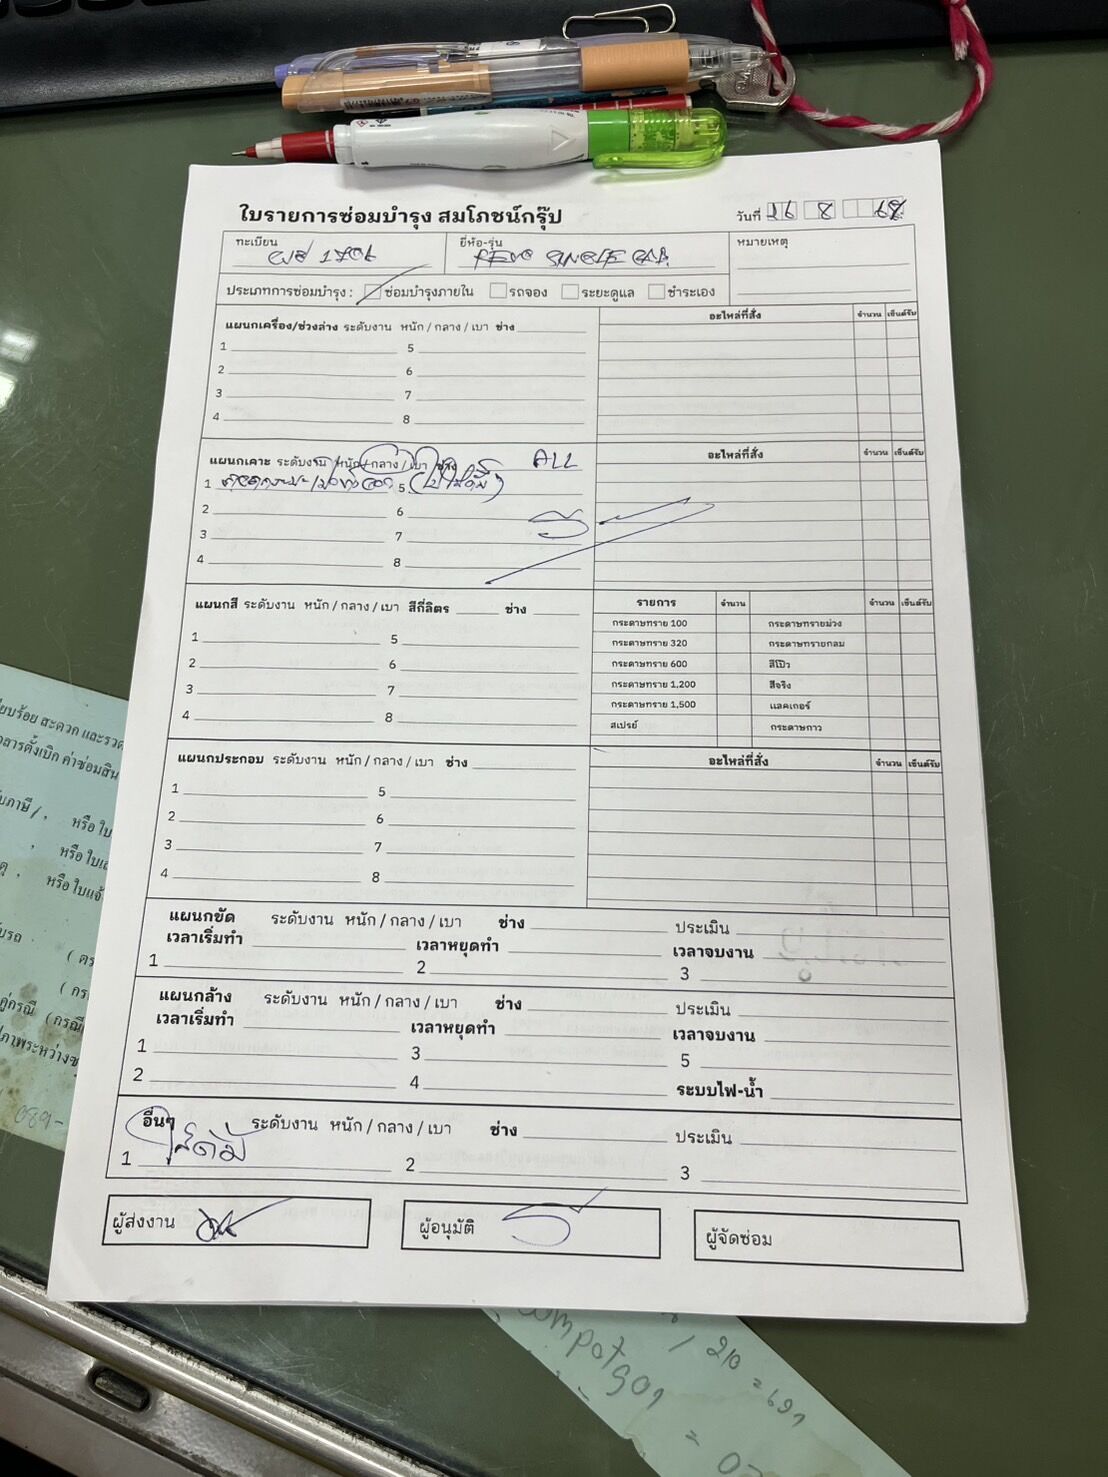 ใบรายการซ่อมบำรุง สมโภชน์กรุ๊ป
วันที่ 26 8 68
ทะเบียน 1706
ยี่ห้อ-รุ่น REVO SINGLE CAB.
หมายเหตุ
ประเภทการซ่อมบำรุง : ซ่อมบำรุงภายใน รถจอง ระยะดูแล ชำระเอง
แผนกเครื่อง/ช่วงล่าง ระดับงาน หนัก / กลาง / เบา ช่าง
อะไหล่ที่สั่ง จำนวน เซ็นต์รับ
1 5
2 6
3 7
4 8
แผนกเคาะ ระดับงาน หนัก / กลาง / เบา ช่าง ALL
อะไหล่ที่สั่ง จำนวน เซ็นต์รับ
1 5
2 6
3 7
4 8
แผนกสี ระดับงาน หนัก / กลาง / เบา สีกี่ลิตร ช่าง
รายการ จำนวน จำนวน เซ็นต์รับ
1 5
2 6
3 7
4 8
กระดาษทราย 100 กระดาษทรายม่วง
กระดาษทราย 320 กระดาษทรายกลม
กระดาษทราย 600 สีโป๊ว
กระดาษทราย 1,200 สีจริง
กระดาษทราย 1,500 แลคเกอร์
สเปรย์ กระดาษกาว
แผนกประกอบ ระดับงาน หนัก / กลาง / เบา ช่าง
อะไหล่ที่สั่ง จำนวน เซ็นต์รับ
1 5
2 6
3 7
4 8
แผนกขัด ระดับงาน หนัก / กลาง / เบา ช่าง ประเมิน
เวลาเริ่มทำ เวลาหยุดทำ เวลาจบงาน
1 2 3
แผนกล้าง ระดับงาน หนัก / กลาง / เบา ช่าง ประเมิน
เวลาเริ่มทำ เวลาหยุดทำ เวลาจบงาน
1 3 5
2 4 ระบบไฟ-น้ำ
อื่นๆ ระดับงาน หนัก / กลาง / เบา ช่าง ประเมิน
1 2 3
ผู้ส่งงาน
ผู้อนุมัติ
ผู้จัดซ่อม
หรือ ใบ
089-